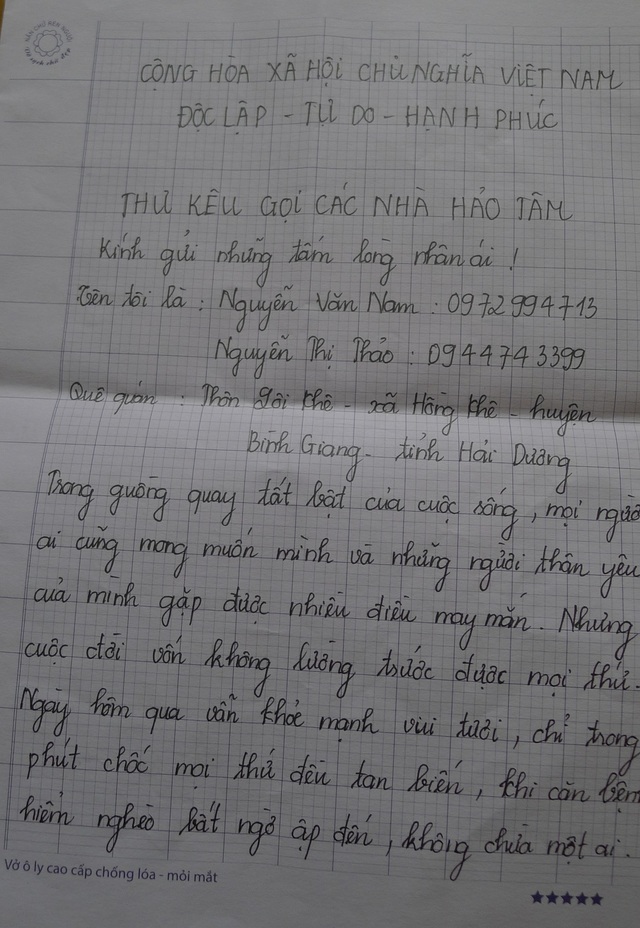 CỘNG HÒA XÃ HỘI CHỦ NGHĨA VIỆT NAM
ĐỘC LẬP - TỰ DO - HẠNH PHÚC
THƯ KÊU GỌI CÁC NHÀ HẢO TÂM
Kính gửi những tấm lòng nhân ái !
Tên tôi là : Nguyễn Văn Nam : 0972994713
Nguyễn Thị Thảo : 0944743399
Quê quán : Thôn Gòi Khê - xã Hồng Khê - huyện
Bình Giang - tỉnh Hải Dương
Trong guồng quay tất bật của cuộc sống, mọi người
ai cũng mong muốn mình và những người thân yêu
của mình gặp được nhiều điều may mắn. Nhưng
cuộc đời vốn không lường trước được mọi thứ.
Ngày hôm qua vẫn khỏe mạnh vui tươi, chỉ trong
phút chốc mọi thứ đều tan biến, khi căn bệnh
hiểm nghèo bất ngờ ập đến, không chừa một ai.
Vở ô ly cao cấp chống lóa - mỏi mắt